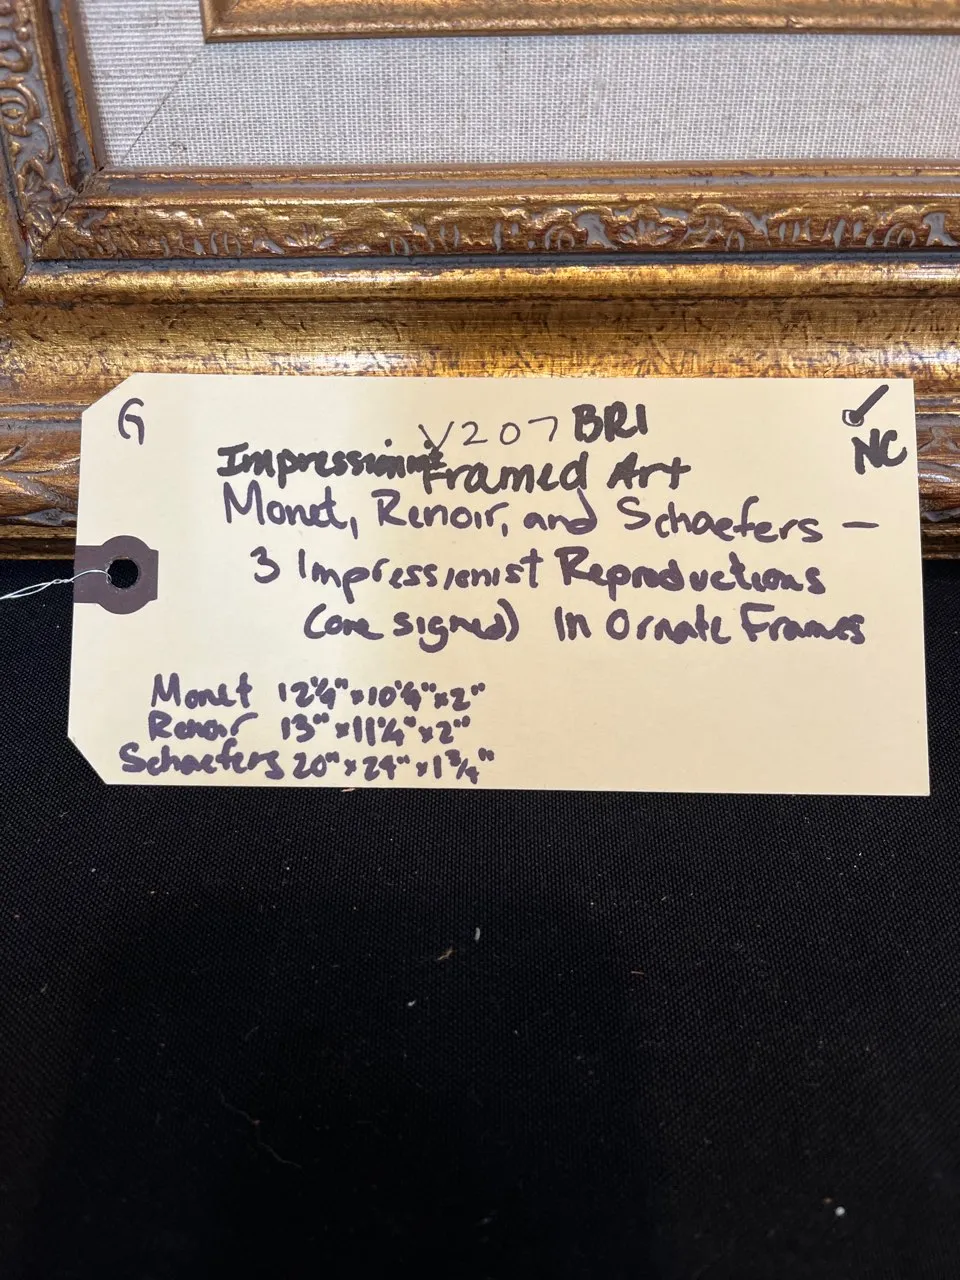 G
V207 BRI
NC
Framed Art
Monet, Renoir, and Schaefers —
3 Impressionist Reproductions
(one signed) In Ornate Frames
Monet 12 1/4" x 10 1/4" x 2"
Renoir 13" x 11 1/4" x 2"
Schaefers 20" x 24" x 1 3/4"